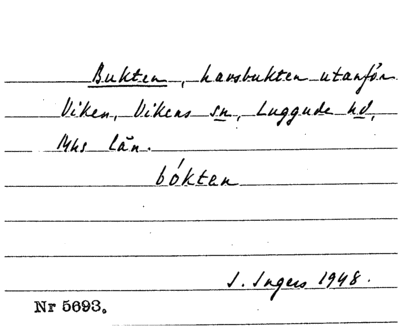 Bukten, havsbukten utanför
Viken, Vikens sn, Luggude hd,
Mhs län.
bókten
I. Ingers 1948.
Nr 5693.